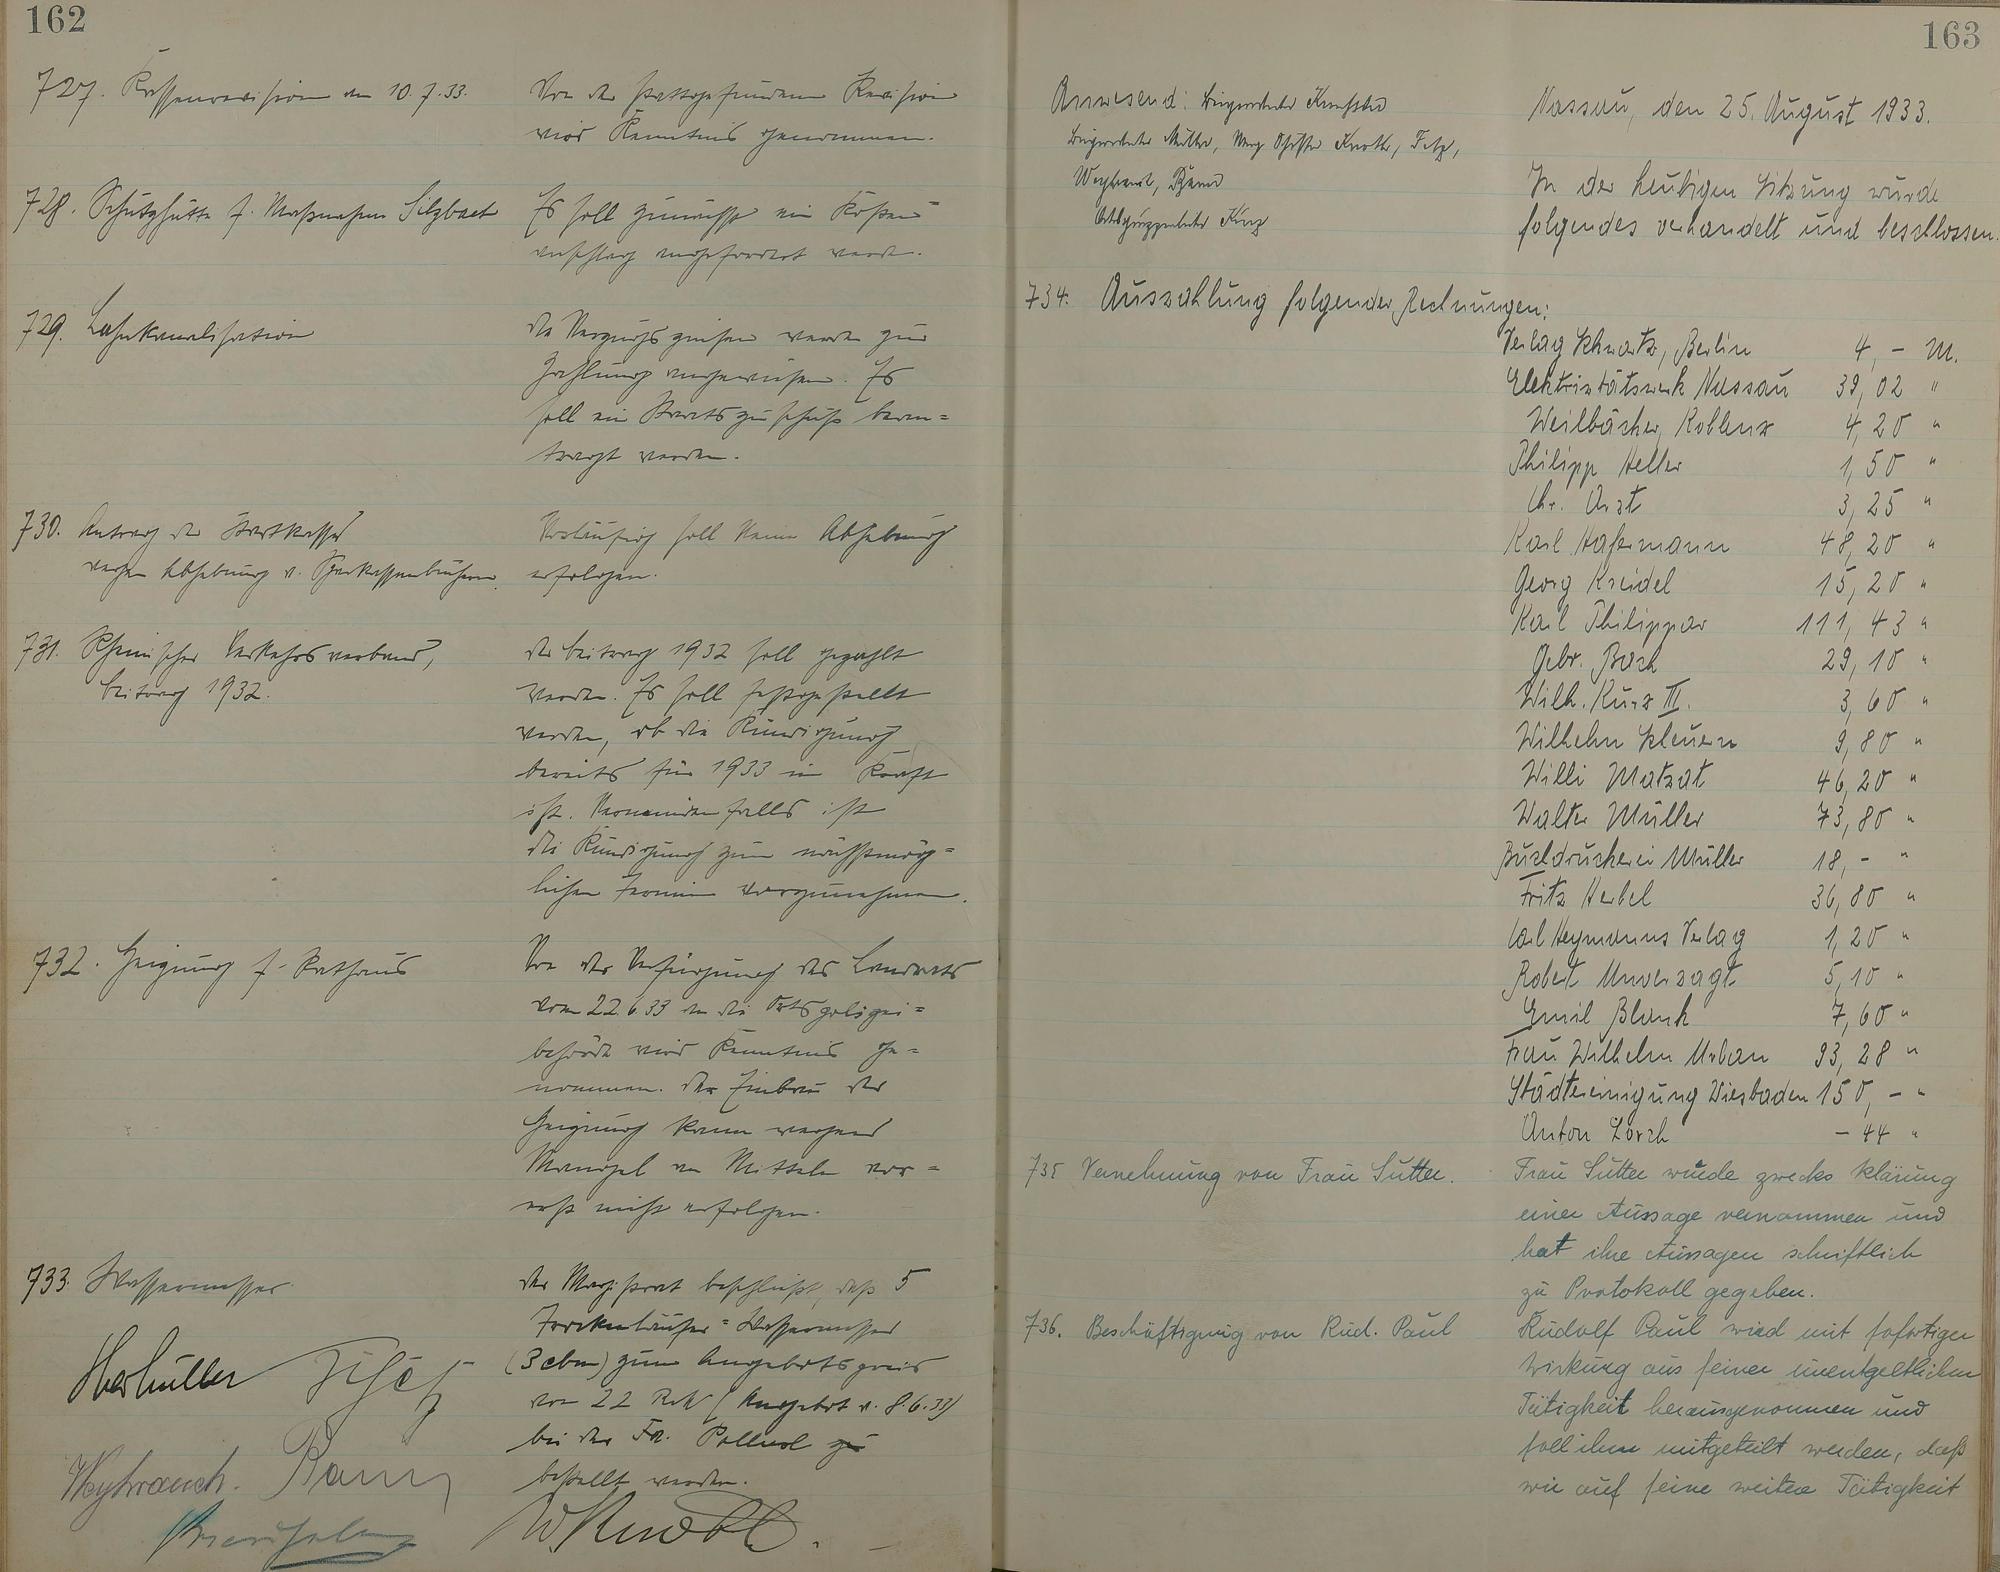 162
727. Kassenrevision am 10.7.33.
Von der stattgefundenen Revision
wird Kenntnis genommen.
728. Schutzhütte f.
Es soll zunächst ein Kosten-
anschlag angefordert werden.
729. Lahnkanalisation
Die Verzugszinsen werden zur
Zahlung angewiesen. Es
soll ein Staatszuschuß bean=
tragt werden.
730. Antrag der Stadtkasse
wegen Abhebung v. Sparkassenbüchern.
Vorläufig soll keine Abhebung
erfolgen.
731. Rheinischer Verkehrsverband,
Beitrag 1932.
Der Beitrag 1932 soll gezahlt
werden. Es soll festgestellt
werden, ob die Kündigung
bereits für 1933 in Kraft
ist. Verneinendenfalls ist
die Kündigung zum nächstmög=
lichen Termin vorzunehmen.
732. Heizung f. Rathaus
Von der Verfügung des Landrats
vom 22.6.33 an die Ortspolizei=
behörde wird Kenntnis ge=
nommen. Der Einbau der
Heizung kann wegen
Mangel an Mitteln vor=
erst nicht erfolgen.
733. Wassermesser
Der Magistrat beschließt, daß 5
Trockenläufer=Wassermesser
(3 cbm) zum Angebotspreis
von 22 RM (Angebot v. 8.6.33)
bei der Fa. zu
bestellt werden.
Weyhrauch.
163
Anwesend: Bürgermeister
Beigeordneter Müller, Mag. Schöffe Knoth, Fetz,
Weyhrauch,
Ortsgruppenleiter Kurz
Nassau, den 25. August 1933.
In der heutigen Sitzung wurde
folgendes verhandelt und beschlossen.
734. Auszahlung folgender Rechnungen:
Verlag Schwartz, Berlin 4,- M.
Elektrizitätswerk Nassau 39,02 "
Weilbächer, Koblenz 4,20 "
Philipp Heller 1,50 "
Chr. Arzt 3,25 "
Karl Hafermann 48,20 "
Georg Kreidel 15,20 "
Karl Philippar 111,43 "
Gebr. Bach 29,10 "
Wilh. Kurz III. 3,60 "
Wilhelm Scheuern 9,80 "
Willi Matzat 46,20 "
Walter Müller 73,80 "
Buchdruckerei Müller 18,- "
Fritz Herbel 36,80 "
Carl Heymanns Verlag 1,20 "
Robert Unverzagt 5,10 "
Emil Blank 7,60 "
Frau Wilhelm Urban 93,28 "
Städtereinigung Wiesbaden 150,- "
Anton Lorch - 44 "
735 Vernehmung von Frau Sutter.
Frau Sutter wurde zwecks Klärung
einer Aussage vernommen und
hat ihre Aussagen schriftlich
zu Protokoll gegeben.
736. Beschäftigung von Rud. Paul
Rudolf Paul wird mit sofortiger
Wirkung aus seiner unentgeltlichen
Tätigkeit herausgenommen und
soll ihm mitgeteilt werden, daß
wir auf seine weitere Tätigkeit